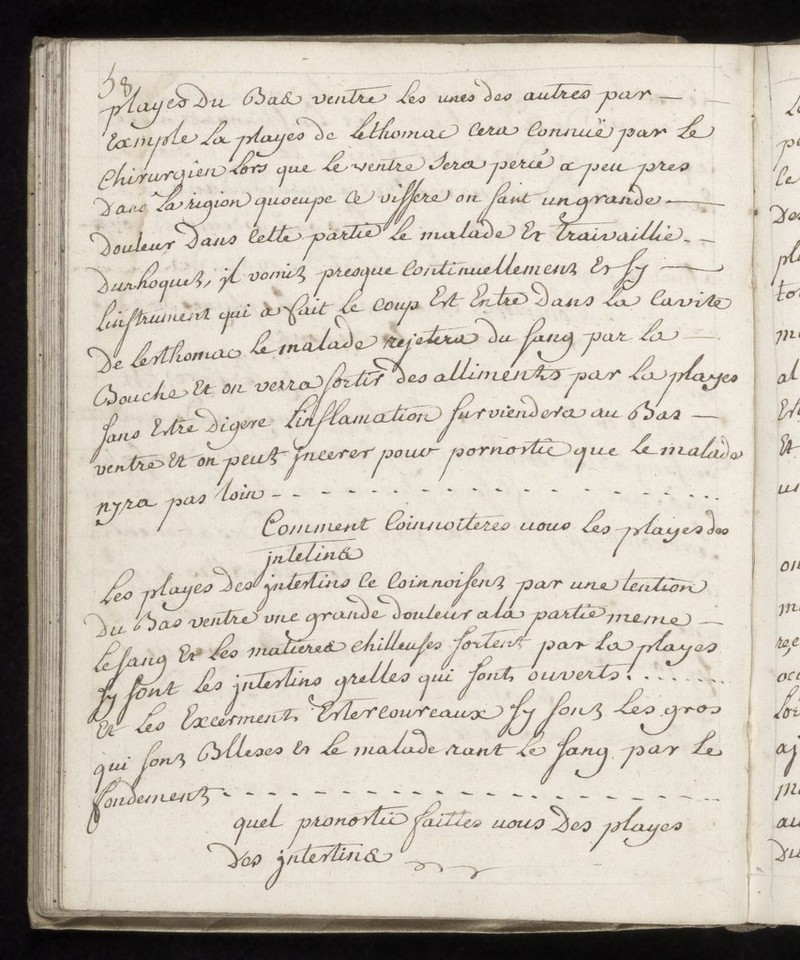 58
playes Du Bas ventre les unes des autres par —
Exemple La playes de Lethomac Cera Connuë par Le
Chirurgien Lors que Le ventre Sera percé a peu pres
Dans La rigion quoccupe Ce vissere on sant un grande —
Douleur Dans Cette partie Le malade Et traivaillie —
Dunhoquet, jl vomit presque Continuellement Et sy —
Linstrument qui a fait Le coup Est Entre Dans La Cavite
De Lesthomac Le malade rejetera du sang par La —
Bouche Et on verra sortir des alliments par La playes
sans Estre Digere Linflamation surviendera au Bas —
ventre Et on peut jncerer pour pornostic que Le malade
nyra pas loin - - - - - - - - - - - - - - - - - -
Comment Coinnoiteres vous Les playes des
jntetins
Les playes Des jntestins Ce Coinnoisent par une tention
Du Bas ventre une grande douleur a la partie meme —
Le sang Et Les matieres chilleuses sortent par La playes
sy sont Les jntestins grelles qui sont ouverts. . . . . . . .
Et Les Excerments Estercoureaux sy sont Les gros
qui sont Blleses Et Le malade rant Le sang par Le
fondement - - - - - - - - - - - - - - - - - - - -
quel pronostic faittes vous Des playes
Des jntestins